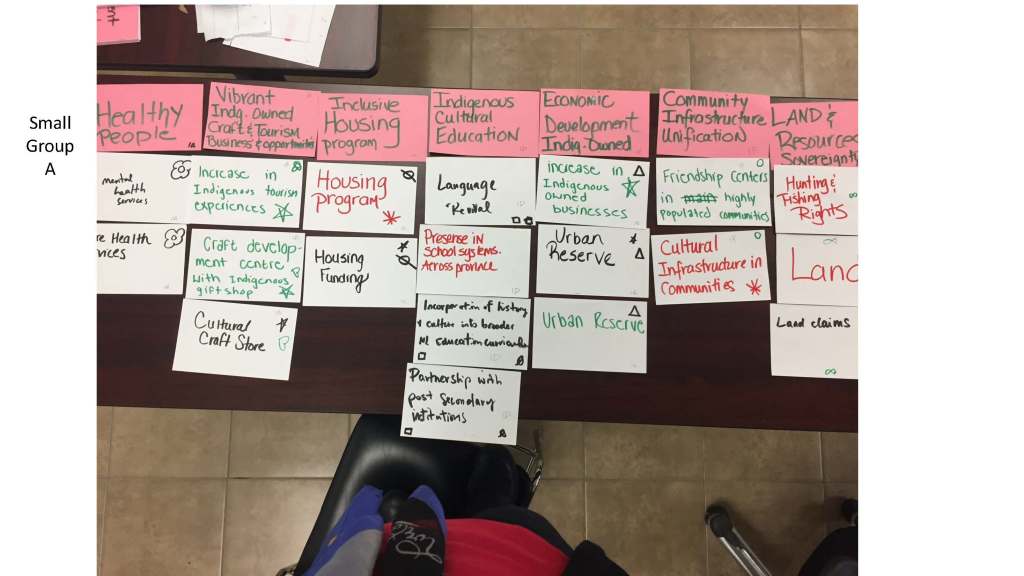 Small
Group
A
Healthy
People
mental
health
services
Health
Vibrant
Indg. Owned
Craft & Tourism
Business & opportunities
Increase in
Indigenous tourism
experiences
Craft develop-
ment centre
with Indigenous
gift shop
Cultural
Craft Store
Inclusive
Housing
program
Housing
program
Housing
Funding
Indigenous
Cultural
Education
Language
Revival
Presense in
School systems.
Across province
Incorporation of history
& culture into broader
NL education curriculum
Partnership with
post secondary
institutions
Economic
Development
Indig-Owned
increase in
Indigenous
owned
businesses
Urban
Reserve
Urban Reserve
Community
Infrastructure
Unification
Friendship Centers
in main highly
populated communities
Cultural
Infrastructure in
Communities
LAND &
Resources
Sovereignty
Hunting &
Fishing
Rights
Land claims